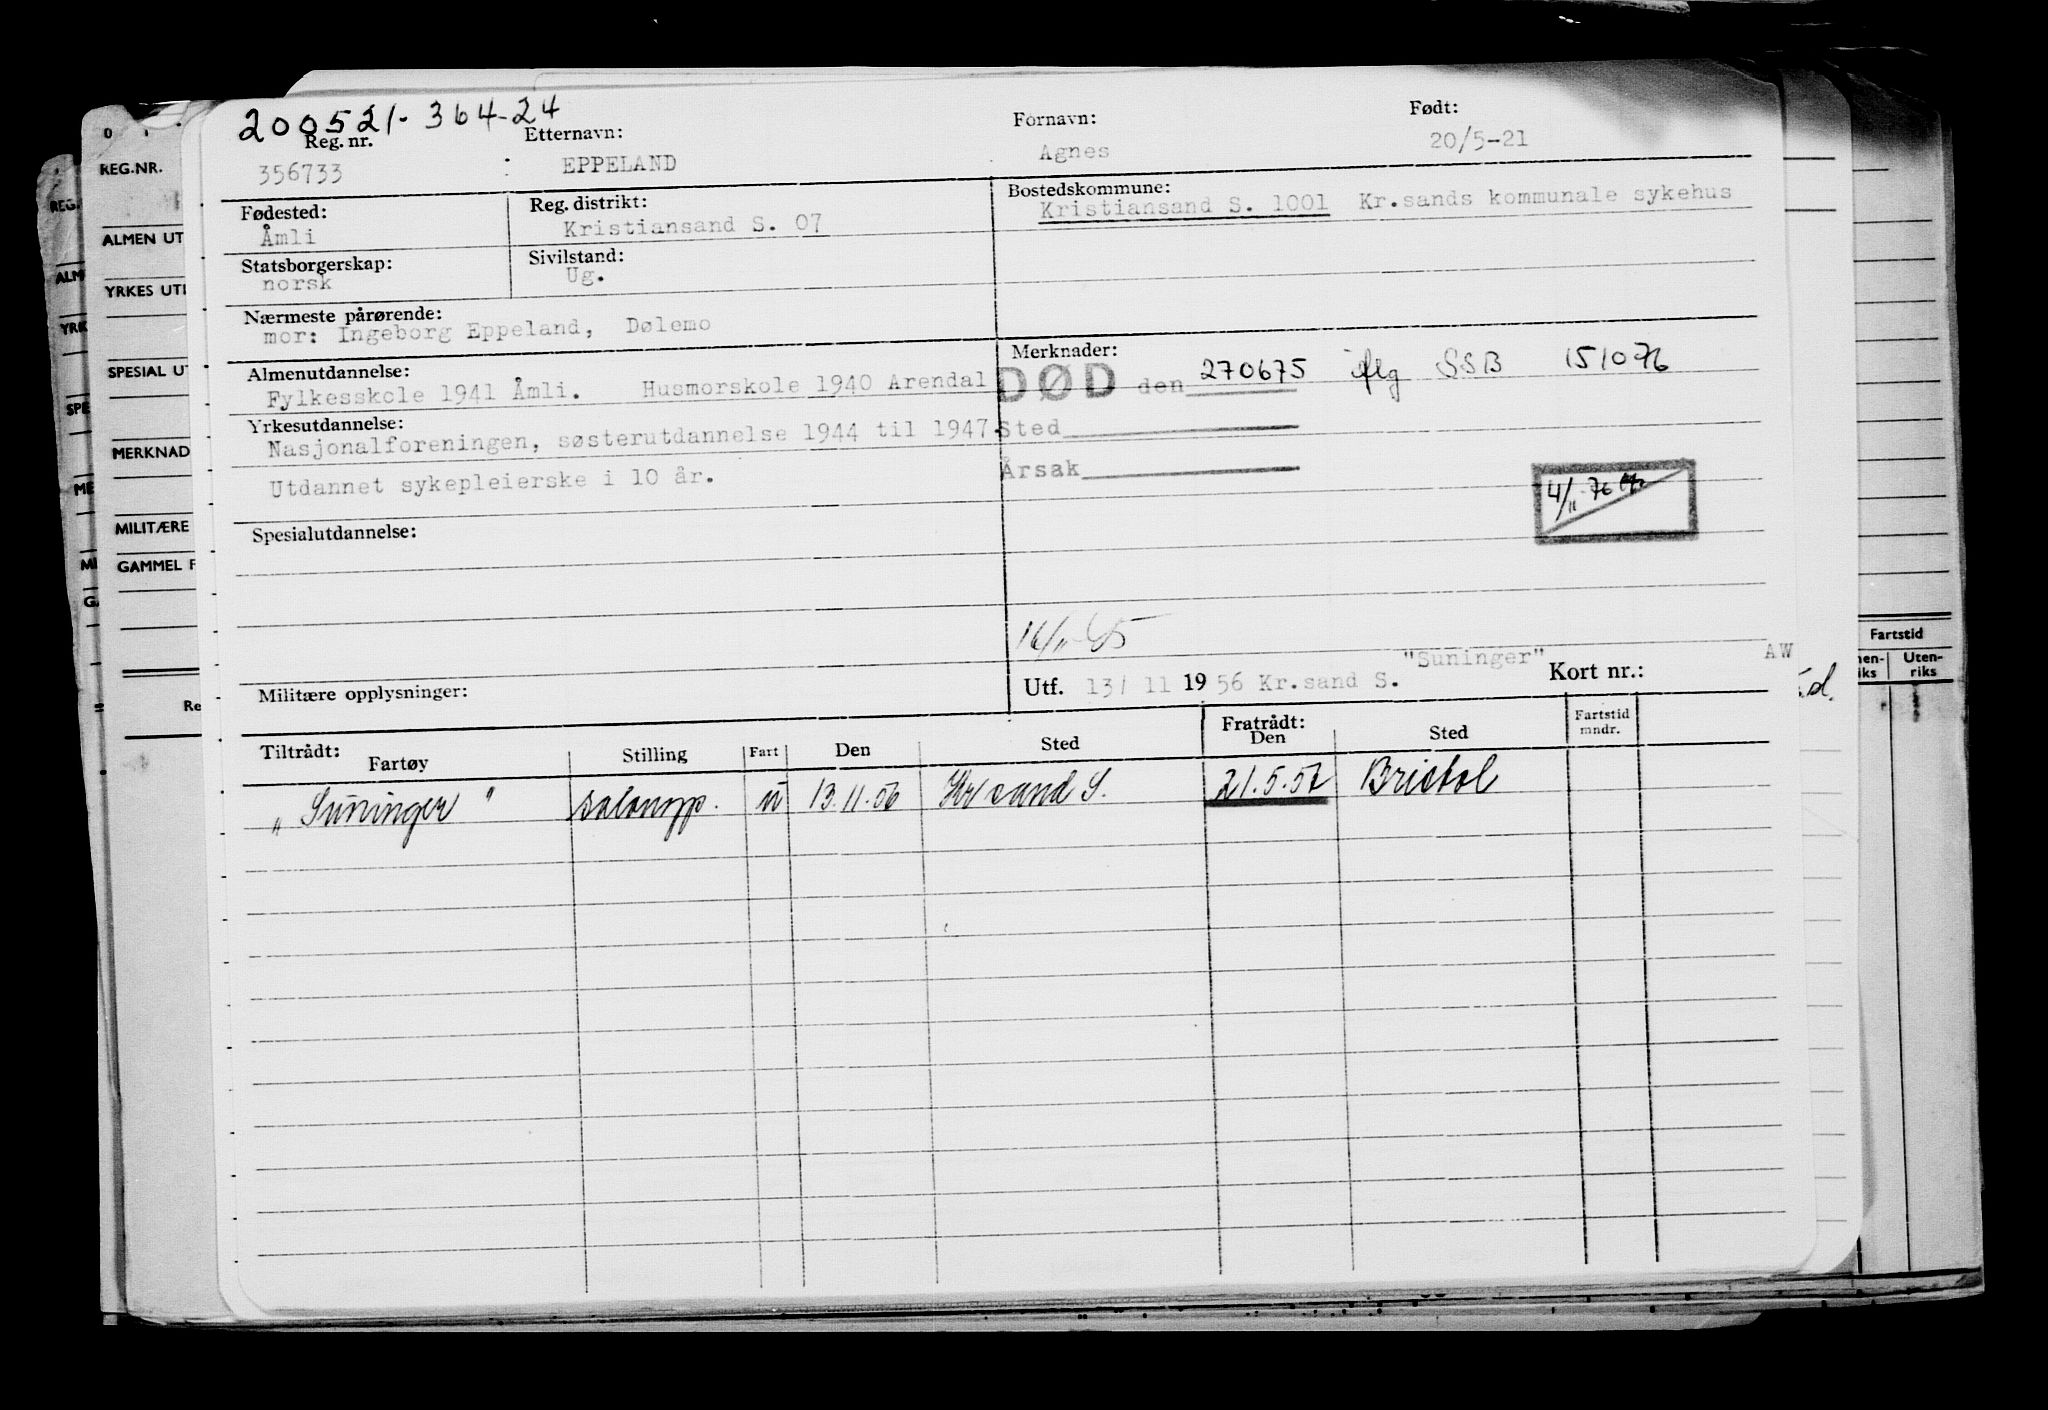 200521-364-24
Reg. nr. Etternavn: Fornavn: Født:
356733 EPPELAND Agnes 20/5-21
Fødested: Reg. distrikt: Bostedskommune:
Åmli Kristiansand S. 07 Kristiansand S. 1001 Kr.sands kommunale sykehus
Statsborgerskap: Sivilstand:
norsk Ug.
Nærmeste pårørende:
mor: Ingeborg Eppeland, Dølemo
Almenutdannelse: Merknader:
Fylkesskole 1941 Åmli. Husmorskole 1940 Arendal DØD den 270675 iflg SSB 151076
Yrkesutdannelse:
Nasjonalforeningen, søsterutdannelse 1944 til 1947. Sted
Utdannet sykepleierske i 10 år. Årsak
4/11 76
Spesialutdannelse:
16/11-65
"Suninger" AW
Militære opplysninger: Utf. 13/ 11 1956 Kr.sand S. Kort nr.:
Tiltrådt: Fratrådt:
Fartøy Stilling Fart Den Sted Den Sted Fartstid mndr.
"Suninger" salongp. u 13.11.56 Kr sand S. 21.5.57 Bristol
REG.NR.
ALMEN UT
YRKES UT
SPESIAL UT
MERKNAD
MILITÆRE
GAMMEL F
Re
REG.
ALM
YRK
SPE
ME
MI
GA
Fartstid
nen-
iks
Uten-
riks